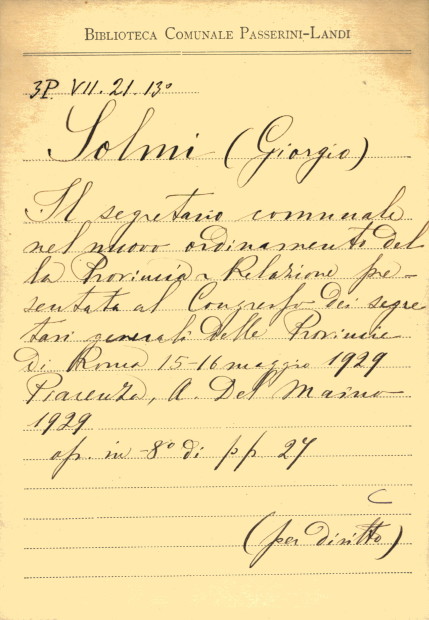 BIBLIOTECA COMUNALE PASSERINI-LANDI
3P. VII. 21. 13º
Solmi (Giorgio)
Il segretario comunale
nel nuovo ordinamento del
la Provincia - Relazione pre-
sentata al Congresso dei segre
tari generali delle Provincie
di Roma 15-16 maggio 1929
Piacenza, A. Del Maino
1929
op. in -8º di pp 27
C
(per diritto)